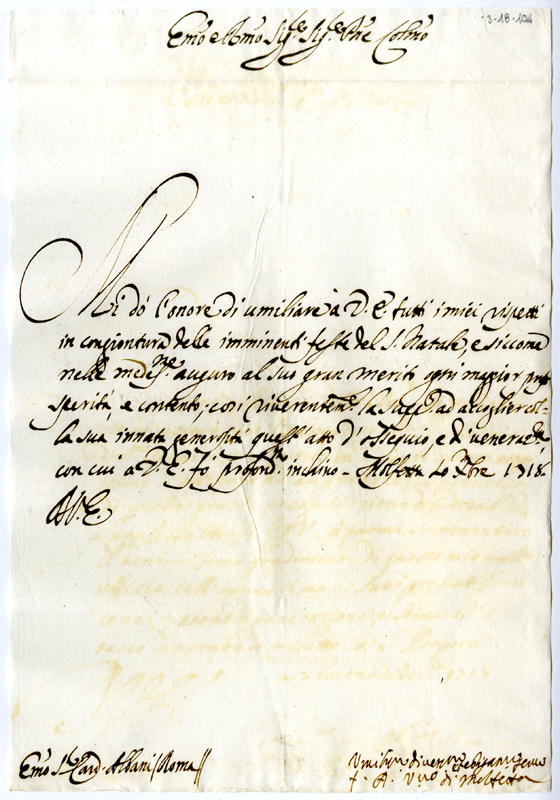 3-18-104
Emo e Rmo Sig.re Sig.re Pne Colmo
Mi dó l'onore di umiliare à V. E. tutti i miei rispetti
in congiontura delle imminenti feste del S. Natale, e siccome
nelle med.me auguro al suo gran merito ogni maggior pro
sperità, e contento, così riverentem.e la supp.co ad accoglier col-
la sua innata generosità quest'atto d'ossequio, e di veneraz.ne
con cui a V. E. fò profond.mo inchino - Molfetta 10 Xbre 1718.
A V. E.
Emo S.r Card. Albani // Roma //
Umiliss.o divotiss.o obligatiss.o servo
f. A. Vvo di Molfetta